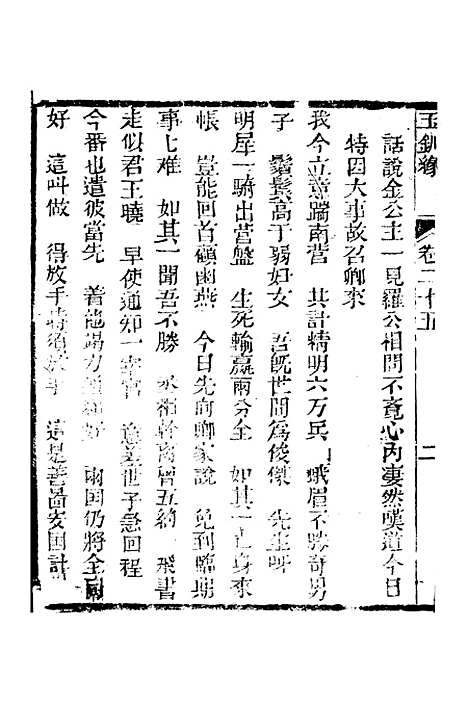 玉釧緣 卷二十五 二
話說金公主一見羅公相問不覺心內淒然嘆道今日
特因大事故召卿來
我今立意踹南營 其計精明六万兵 蛾眉不勝奇男
子 鬚鬢高于弱妇女 吾既世間為俊傑 先生呀
明犀一騎出营盤 生死輸贏兩分全 如其一亡身來
帳 豈能回首鎮幽燕 今日先向卿家說 免到臨期
事七难 如其一聞吾不勝 永福幹离曾五約 飛書
走似君王曉 早使通知一 官 世子急回程
今番也遣彼當先 着他竭力 好 兩国仍將全
好 這叫做 得放手時須放手 這是善啚安国計